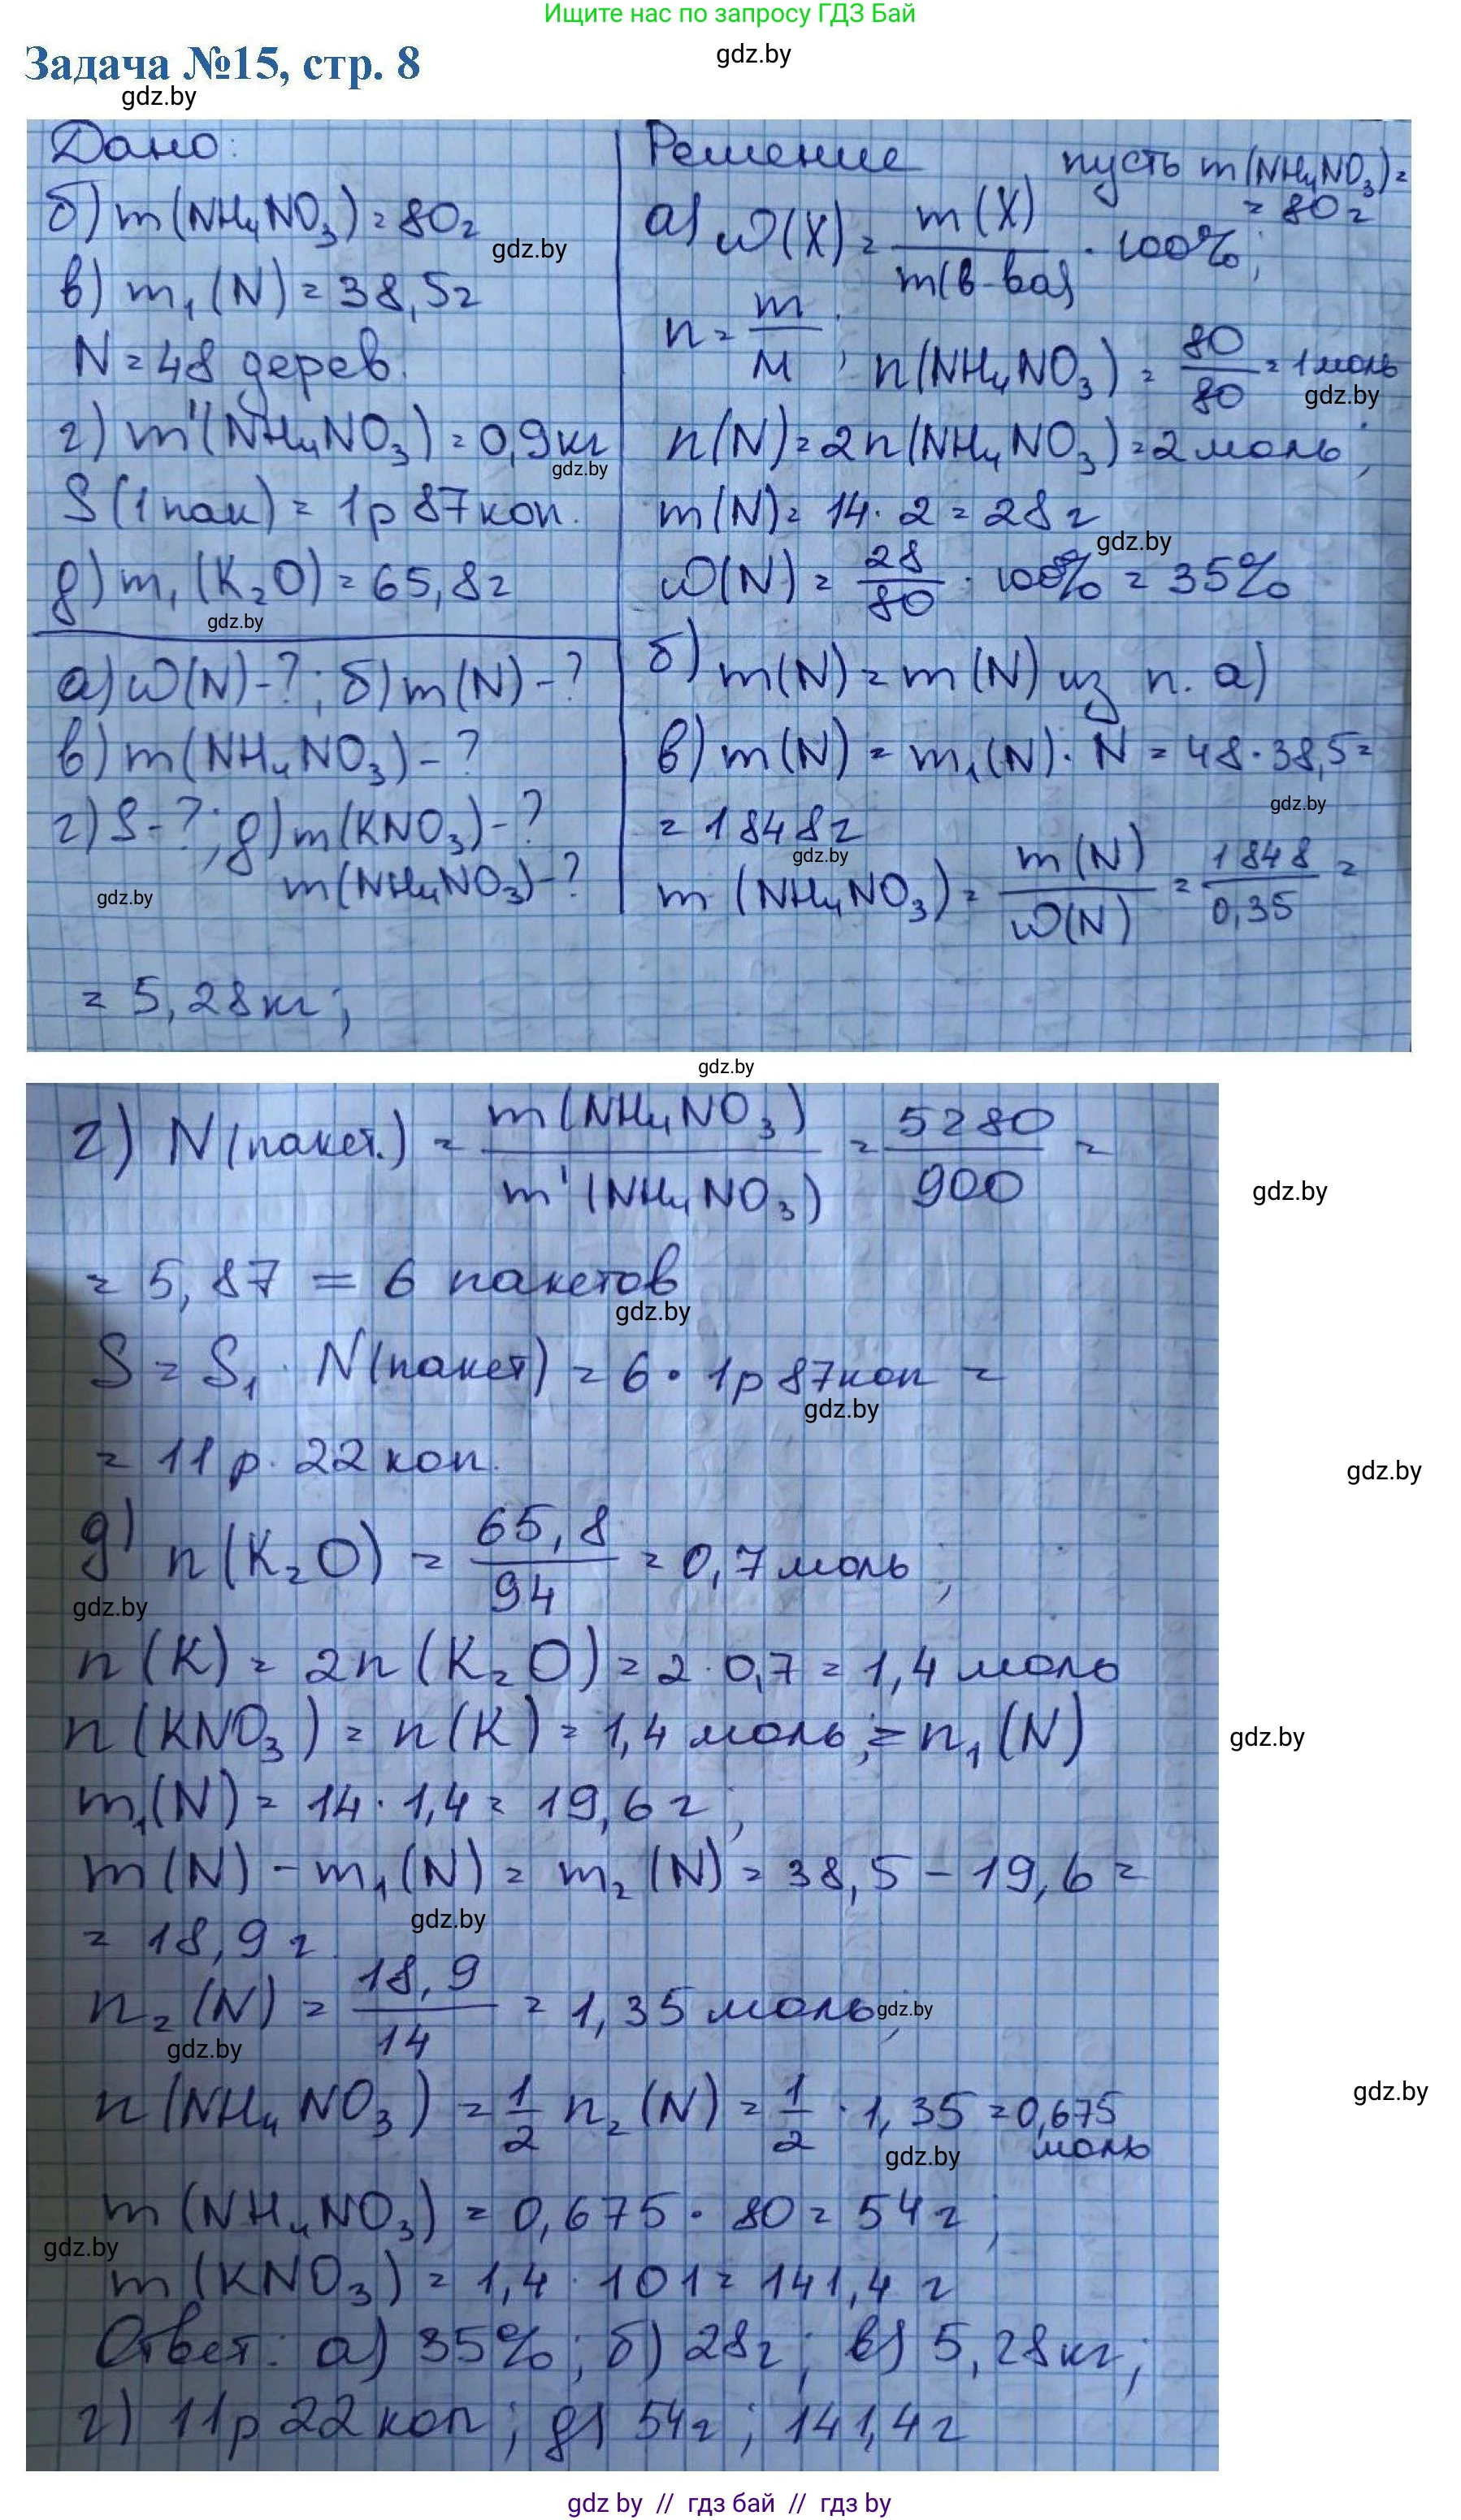 Ищите нас по запросу ГДЗ Бай
gdz.by
Задача №15, стр. 8
gdz.by
Дано:
б) m(NH₄NO₃) = 80г
gdz.by
в) m₁(N) = 38,5г
N = 48 дерев.
г) m'(NH₄NO₃) = 0,9кг
gdz.by
S(1 пак) = 1р 87 коп.
д) m₁(K₂O) = 65,8г
gdz.by
а) ω(N) - ?; б) m(N) - ?
в) m(NH₄NO₃) - ?
г) S - ?; д) m(KNO₃) - ?
m(NH₄NO₃) - ?
gdz.by
Решение пусть m(NH₄NO₃) =
= 80г
а) ω(X) = m(X) / m(в-ва) · 100%;
n = m / M; n(NH₄NO₃) = 80 / 80 = 1 моль
gdz.by
n(N) = 2n(NH₄NO₃) = 2 моль;
m(N) = 14 · 2 = 28г
gdz.by
ω(N) = 28 / 80 · 100% = 35%
б) m(N) = m(N) из п. а)
в) m(N) = m₁(N) · N = 48 · 38,5 =
gdz.by
= 1848г
gdz.by
m(NH₄NO₃) = m(N) / ω(N) = 1848 / 0,35 =
= 5,28кг;
gdz.by
г) N(пакет.) = m(NH₄NO₃) / m'(NH₄NO₃) = 5280 / 900 =
gdz.by
= 5,87 = 6 пакетов
gdz.by
S = S₁ · N(пакет) = 6 · 1р 87 коп =
gdz.by
= 11р. 22 коп.
gdz.by
д) n(K₂O) = 65,8 / 94 = 0,7 моль;
gdz.by
n(K) = 2n(K₂O) = 2 · 0,7 = 1,4 моль
n(KNO₃) = n(K) = 1,4 моль; = n₁(N)
gdz.by
m₁(N) = 14 · 1,4 = 19,6г;
m(N) - m₁(N) = m₂(N) = 38,5 - 19,6 =
gdz.by
= 18,9г
n₂(N) = 18,9 / 14 = 1,35 моль;
gdz.by
gdz.by
n(NH₄NO₃) = 1/2 n₂(N) = 1/2 · 1,35 = 0,675
моль
gdz.by
gdz.by
m(NH₄NO₃) = 0,675 · 80 = 54г;
gdz.by
m(KNO₃) = 1,4 · 101 = 141,4г
Ответ: а) 35%; б) 28г; в) 5,28кг;
г) 11р 22 коп; д) 54г; 141,4г
gdz by // гдз бай // гдз by